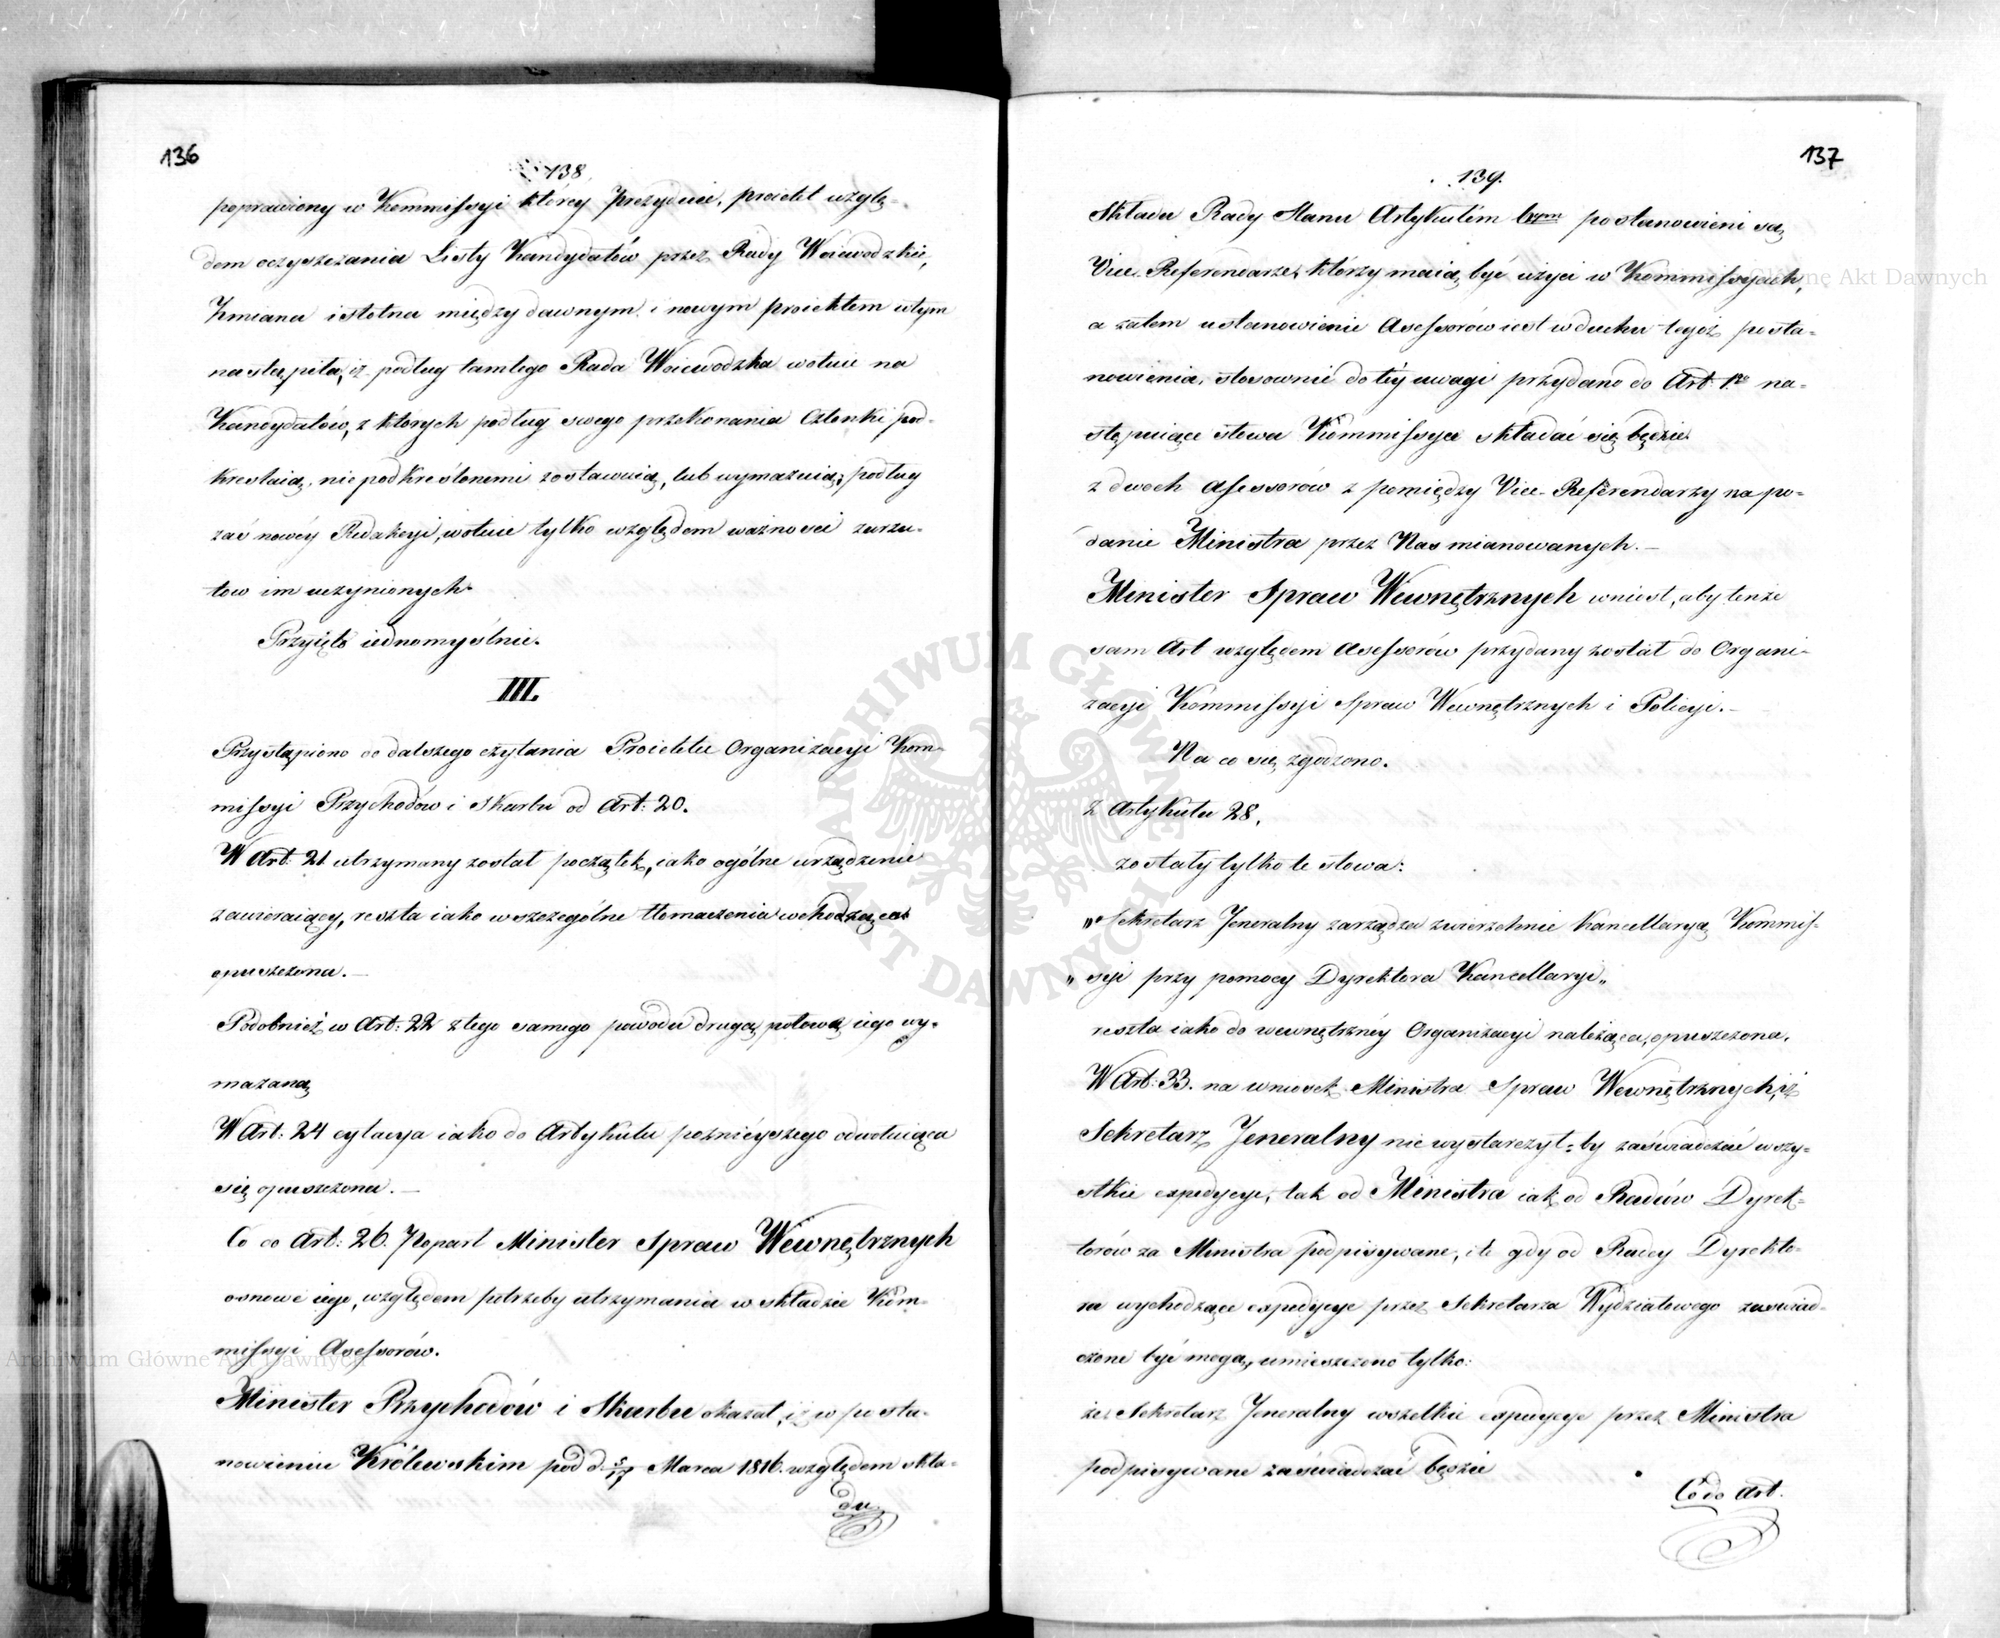 136
138.
poprawiony w Kommissyi którey Prezyduie, proiekt wzglę-
dem oczyszczania Listy Kandydatów przez Rady Woiewodzkie,
Zmiana istotna między dawnym i nowym proiektem w tym
nastąpiła, iż podług tamtego Rada Woiewodzka wotuie na
Kandydatów, z których podług swego przekonania Członki pod-
kreslaią, nie podkreślonemi zostawuią, lub wymazuią, podług
zaś nowéy Redakcyi, wotuie tylko względem ważności zarzu-
tow im uczynionych.
Przyięto iednomyślnie.
III.
Przystąpiono do dalszego czytania Proiektu Organizacyi Kom-
missyi Przychodów i Skarbu od Art: 20.
W Art: 21 utrzymany został początek, iako ogólne urządzenie
zawieraiący, reszta iako w szczególne tłomaczenia wchodząca
opuszczona. —
Podobnież w Art: 22 z tego samego powodu drugą połowę iego wy-
mazaną
W Art: 24 cytacya iako do Artykułu poznieyszego odwołuiąca
się opuszczona. —
Co do Art: 26. Poparł Minister Spraw Wewnętrznych
osnowe iego, względem potrzeby utrzymania w składzie Kom-
missyi Asessorów.
Minister Przychodów i Skarbu okazał, iż w posta-
nowieniu Królewskim pod d. 5/17 Marca 1816. względem skła-
du
137
139.
składu Rady Stanu Artykułem postanowieni są
Vice-Referendarze, którzy maią być użyci w Kommissyach,
a zatem ustanowienie Asessorów iest w duchu tegoż posta-
nowienia, stosownie do téy uwagi przydano do Art: 1go na-
stępuiące słowa Kommissya składać się będzie
z dwoch Asessorów z pomiędzy Vice-Referendarzy na po-
danie Ministra przez Nas mianowanych. —
Minister Spraw Wewnętrznych wniosł, aby tenże
sam Art względem Asessorów przydany został do Organi-
zacyi Kommissyi Spraw Wewnętrznych i Policyi. —
Na co się zgodzono.
z Artykułu 28.
zostały tylko te słowa:
„Sekretarz Jeneralny zarządza zwierzchnie Kancellaryą Kommis-
„syi przy pomocy Dyrektora Kancellaryi„
reszta iako do wewnętrznéy Organizacyi należąca, opuszczona.
W Art: 33. na wniosek Ministra Spraw Wewnętrznych, iż
Sekretarz Jeneralny nie wystarczył-by zaświadczać wszy-
stkie expedycye, tak od Ministra iak od Radców Dyrek-
torów za Ministra podpisywane, i te gdy od Radcy Dyrekto-
ra wychodzące expedycye przez Sekretarza Wydziałowego zaswiad-
czone być mogą, umieszczono tylko:
że Sekretarz Jeneralny wszelkie expedycye przez Ministra
podpisywane zaświadczać będzie
Co do Art.
ARCHIWUM GŁÓWNE AKT DAWNYCH
Archiwum Główne Akt Dawnych
Główne Akt Dawnych